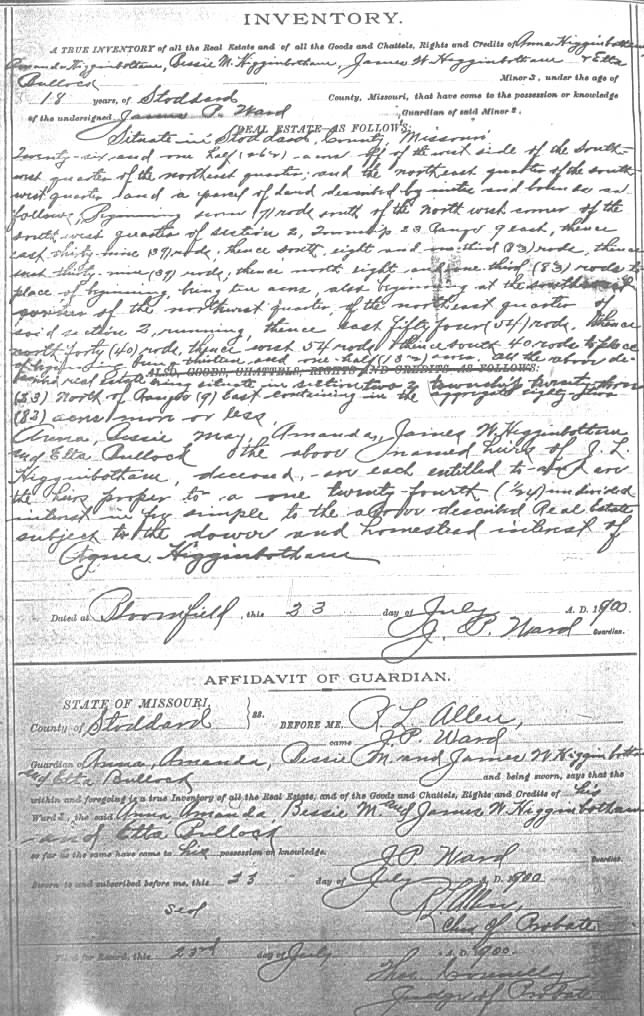 INVENTORY.
A TRUE INVENTORY of all the Real Estate and of all the Goods and Chattels, Rights and Credits of Anna Higginbotham
Amanda Higginbotham, Bessie M. Higginbotham, James W. Higginbotham & Etta
Bullock Minors, under the age of
18 years, of Stoddard County, Missouri, that have come to the possession or knowledge
of the undersigned James P. Ward Guardian of said Minors.
REAL ESTATE AS FOLLOWS:
Situate in Stoddard County Missouri
Twenty-six and one half (26½) acres off of the west side of the south-
west quarter of the northeast quarter; and the northeast quarter of the south-
west quarter and a parcel of land described by metes and bounds as
follows, Beginning seven (7) rods south of the north west corner of the
south west quarter of section 2, Township 23 Range 9 east, thence
east thirty-nine (39) rods, thence south eight and one third (8⅓) rods, thence
west thirty-nine (39) rods, thence north eight and one third (8⅓) rods to
place of beginning being two acres, also beginning at the southwest
corner of the northwest quarter, of the northeast quarter of
said section 2, running, thence east fifty four (54) rods, thence
north forty (40) rods, thence west 54 rods thence south 40 rods to place
of beginning being thirteen and one-half (13½) acres. All the above de-
ALSO, GOODS, CHATTELS, RIGHTS AND CREDITS AS FOLLOWS:
scribed real estate being situate in section two 2 township twenty three
(23) North of Range (9) East containing in the aggregate eighty two
(82) acres more or less,
Anna, Bessie May, Amanda, James W. Higginbotham
and Etta Bullock the above named heirs of J. L.
Higginbotham, deceased, are each entitled to and are
the heirs proper to a one twenty fourth (1/24) undivided
interest in fee simple to the above described Real Estate
subject to the dower and homestead interest of
Agnes Higginbotham
Dated at Bloomfield, this 23 day of July A. D. 1900.
J. P. Ward Guardian.
AFFIDAVIT OF GUARDIAN.
STATE OF MISSOURI,
County of Stoddard } ss. BEFORE ME, R L Allen,
came J. P. Ward
Guardian of Anna, Amanda, Bessie M. and James W. Higginbotham
and Etta Bullock and being sworn, says that the
within and foregoing is a true Inventory of all the Real Estate, and of the Goods and Chattels, Rights and Credits of his
Wards, the said Anna Amanda, Bessie M. and James W. Higginbotham
and Etta Bullock
so far as the same have come to his possession or knowledge.
J. P. Ward Guardian.
Sworn to and subscribed before me, this 23 day of July A. D. 1900
R L Allen,
Clerk of Probate
Filed for Record, this 23rd day of July A. D. 1900.
Thos Connelly
Judge of Probate